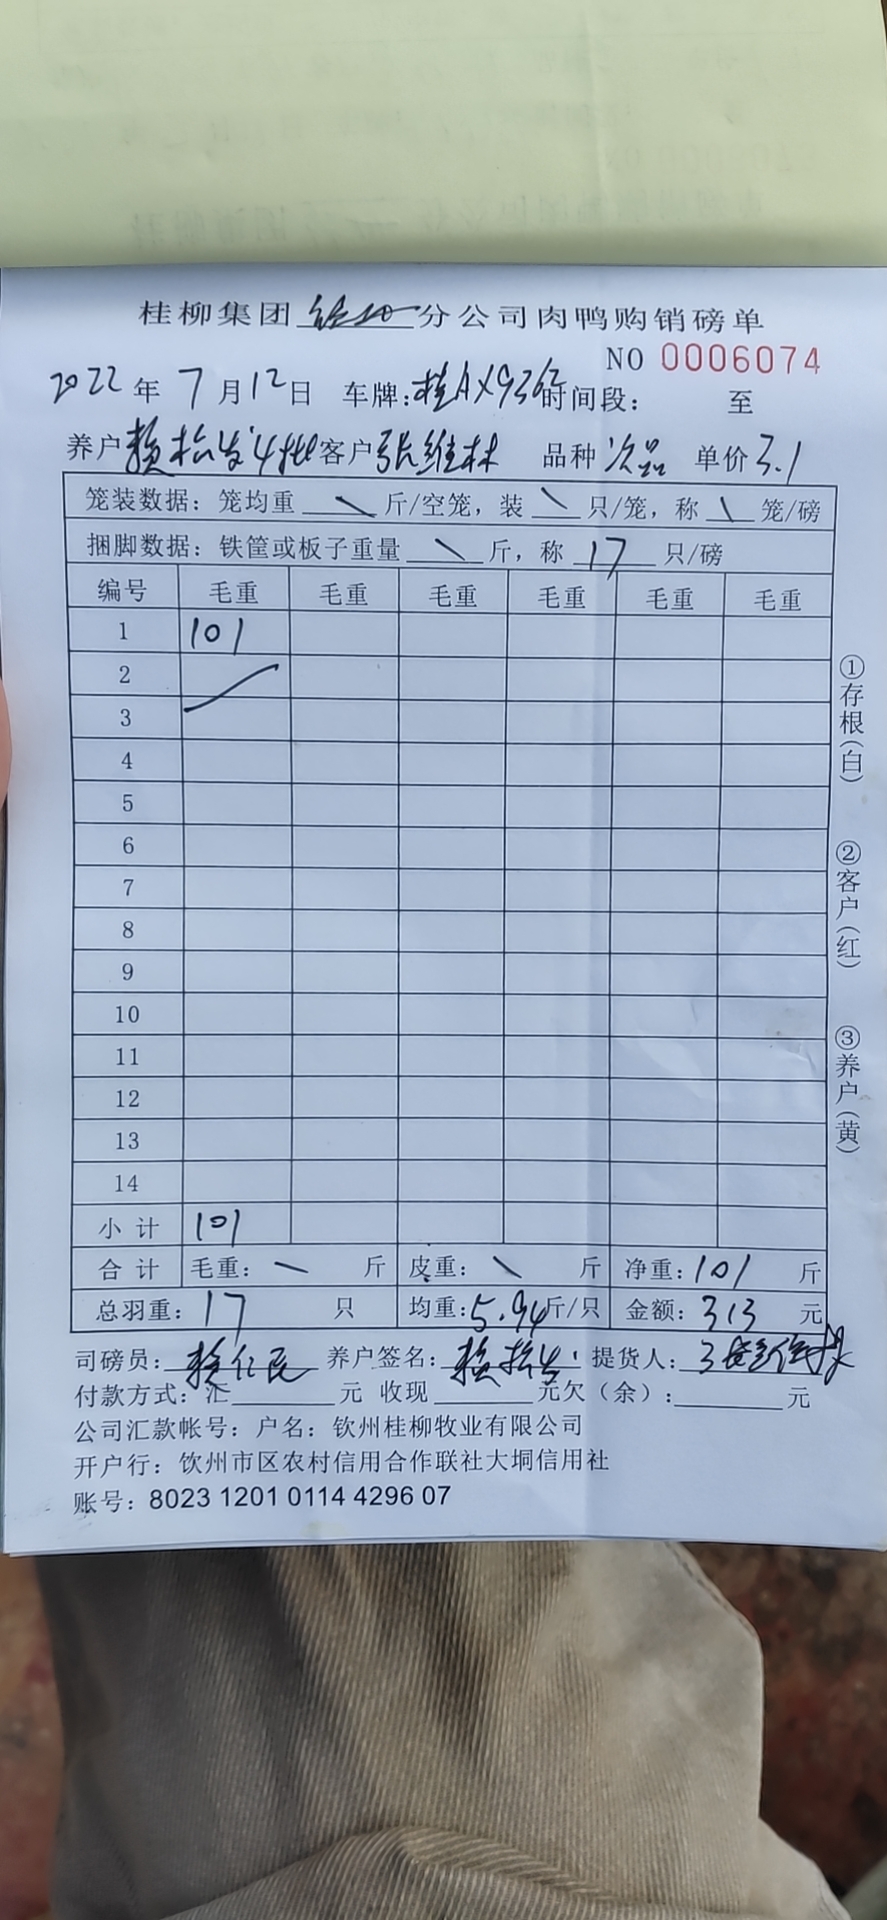 桂柳集团 分公司肉鸭购销磅单
NO 0006074
2022年7月12日 车牌:桂AX93 时间段: 至
养户 赖松发4批 客户 张维林 品种 次品 单价 3.1
笼装数据:笼均重 \ 斤/空笼,装 \ 只/笼,称 \ 笼/磅
捆脚数据:铁筐或板子重量 \ 斤,称 17 只/磅
编号 毛重 毛重 毛重 毛重 毛重 毛重
1 101
2
3
4
5
6
7
8
9
10
11
12
13
14
小计 101
合计 毛重: 斤 皮重: \ 斤 净重:101 斤
总羽重:17 只 均重:5.94斤/只 金额:313 元
司磅员: 赖仁民 养户签名: 赖松发 提货人:
付款方式:汇 元 收现 元欠(余): 元
公司汇款帐号:户名:钦州桂柳牧业有限公司
开户行:钦州市区农村信用合作联社大垌信用社
账号:8023 1201 0114 4296 07
①存根(白)
②客户(红)
③养户(黄)